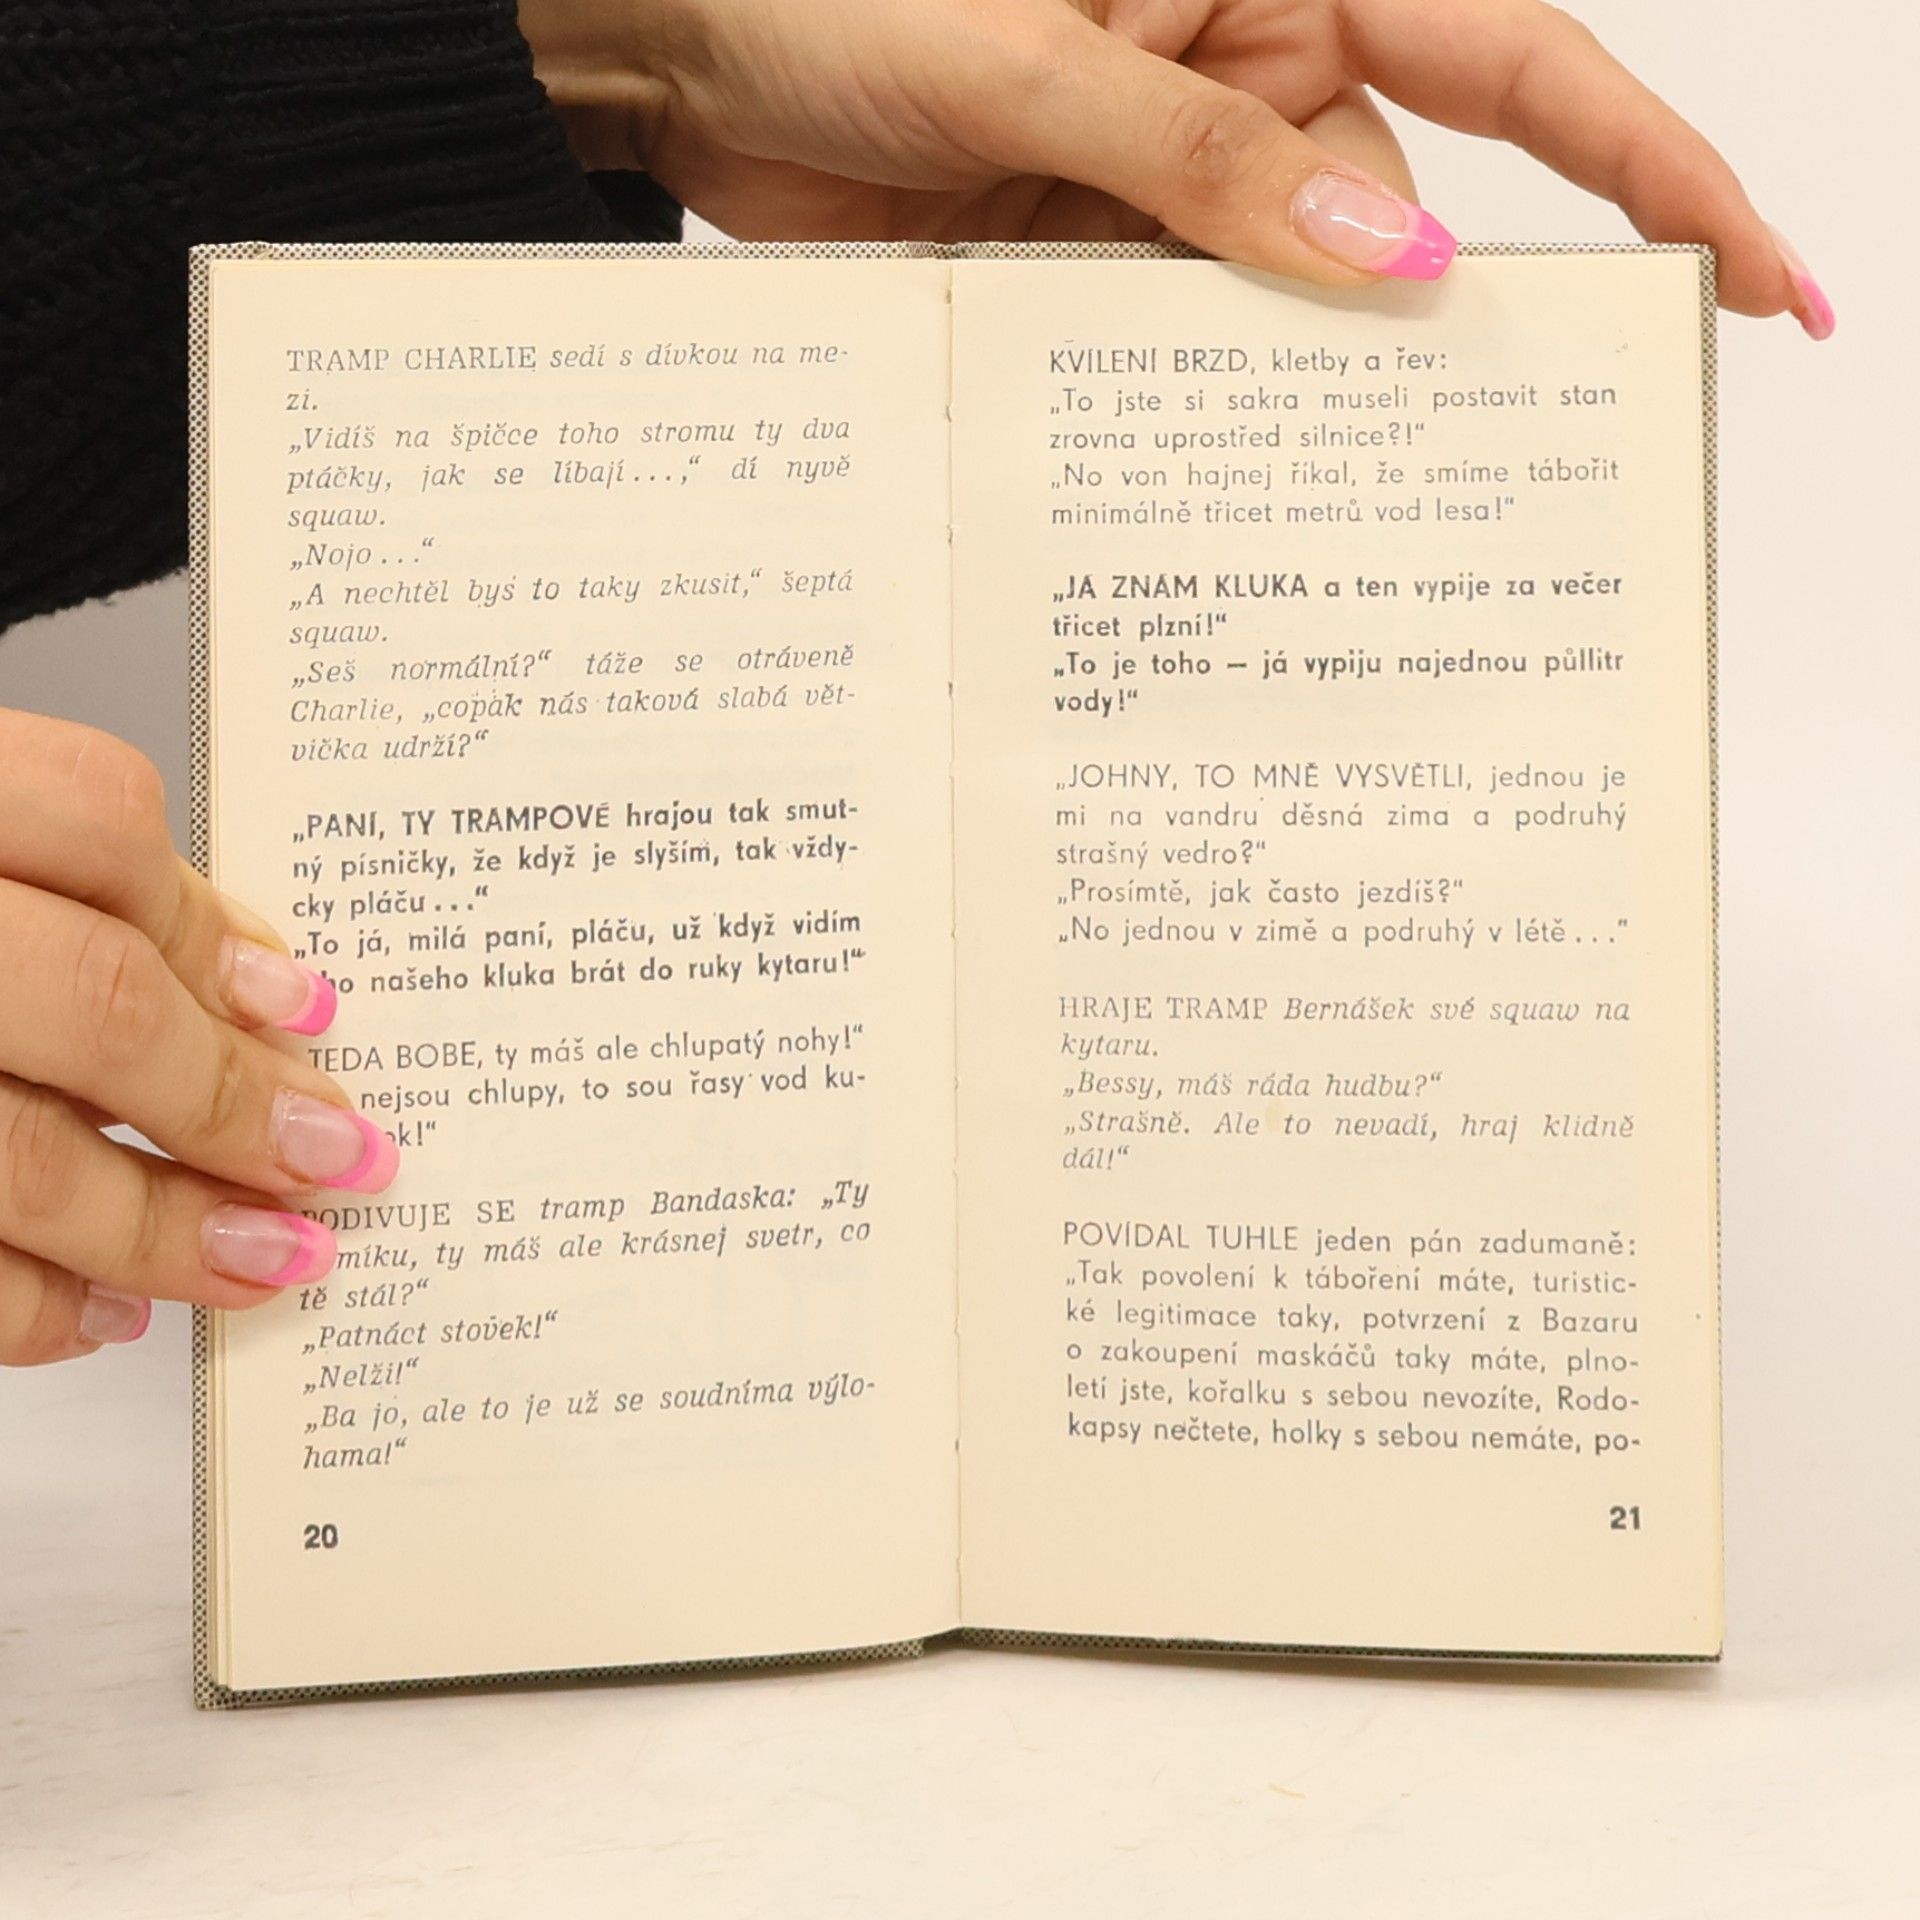 TRAMP CHARLIE sedí s dívkou na me-
zi.
„Vidíš na špičce toho stromu ty dva
ptáčky, jak se líbají...,“ dí nyvě
squaw.
„Nojo...“
„A nechtěl bys to taky zkusit,“ šeptá
squaw.
„Seš normální?“ táže se otráveně
Charlie, „copak nás taková slabá vět-
vička udrží?“
„PANÍ, TY TRAMPOVÉ hrajou tak smut-
ný písničky, že když je slyším, tak vždy-
cky pláču...“
„To já, milá paní, pláču, už když vidím
našeho kluka brát do ruky kytaru!“
TEDA BOBE, ty máš ale chlupatý nohy!“
nejsou chlupy, to sou řasy vod ku-
ok!“
PODIVUJE SE tramp Bandaska: „Ty
míku, ty máš ale krásnej svetr, co
tě stál?“
„Patnáct stovek!“
„Nelži!“
„Ba jo, ale to je už se soudníma výlo-
hama!“
20
KVÍLENÍ BRZD, kletby a řev:
„To jste si sakra museli postavit stan
zrovna uprostřed silnice?!“
„No von hajnej říkal, že smíme tábořit
minimálně třicet metrů vod lesa!“
„JÁ ZNÁM KLUKA a ten vypije za večer
třicet plzní!“
„To je toho — já vypiju najednou půllitr
vody!“
„JOHNY, TO MNĚ VYSVĚTLI, jednou je
mi na vandru děsná zima a podruhý
strašný vedro?“
„Prosímtě, jak často jezdíš?“
„No jednou v zimě a podruhý v létě...“
HRAJE TRAMP Bernášek své squaw na
kytaru.
„Bessy, máš ráda hudbu?“
„Strašně. Ale to nevadí, hraj klidně
dál!“
POVÍDAL TUHLE jeden pán zadumaně:
„Tak povolení k táboření máte, turistic-
ké legitimace taky, potvrzení z Bazaru
o zakoupení maskáčů taky máte, plno-
letí jste, kořalku s sebou nevozíte, Rodo-
kapsy nečtete, holky s sebou nemáte, po-
21